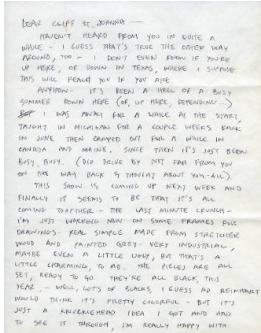 DEAR CLIFF ET JOANNA —
HAVEN'T HEARD FROM YOU IN QUITE A
WHILE - I GUESS THAT'S TRUE THE OTHER WAY
AROUND, TOO - I DON'T EVEN KNOW IF YOU'RE
UP HERE, OR DOWN IN TEXAS, WHERE I SUPPOSE
THIS WILL REACH YOU IF YOU ARE.
ANYHOW - IT'S BEEN A HELL OF A BUSY
SUMMER DOWN HERE (OR, UP HERE, DEPENDING -)
I WAS AWAY FOR A WHILE AT THE START,
TAUGHT IN MICHIGAN FOR A COUPLE WEEKS BACK
IN JUNE THEN CAMPED OUT FOR A WHILE IN
CANADA AND MAINE, SINCE THEN IT'S JUST BEEN
BUSY, BUSY. (DID DRIVE BY NOT FAR FROM YOU
ON THE WAY BACK & THOUGHT ABOUT YOU-ALL)
THIS SHOW IS COMING UP NEXT WEEK AND
FINALLY IT SEEMS TO BE THAT IT'S ALL
COMING TOGETHER - THE LAST MINUTE CRUNCH -
I'M JUST WORKING NOW ON SOME FRAMES FOR
DRAWINGS. REAL SIMPLE MADE FROM STRETCHER
WOOD AND PAINTED GREY - VERY INDUSTRIAL,
MAYBE EVEN A LITTLE UGLY, BUT THAT'S A
LITTLE CHARMING, TO ME. THE PIECES ARE ALL
SET, READY TO GO. THEY'RE ALL BLACK THIS
YEAR - WELL, LOTS OF BLACKS, I GUESS AD REINHART
WOULD THINK IT'S PRETTY COLORFUL - BUT IT'S
JUST A KNUCKLEHEAD IDEA I GOT AND HAD
TO SEE IT THROUGH, I'M REALLY HAPPY WITH